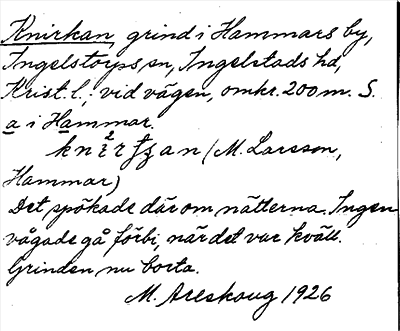 Knirkan, grind i Hammars by,
Ingelstorps sn, Ingelstads hd,
Krist. l., vid vägen, omkr. 200 m. S.
a i Hammar.
(M. Larsson,
Hammar)
Det spökade där om nätterna. Ingen
vågade gå förbi, när det var kväll.
Grinden nu borta.
M. Areskoug 1926